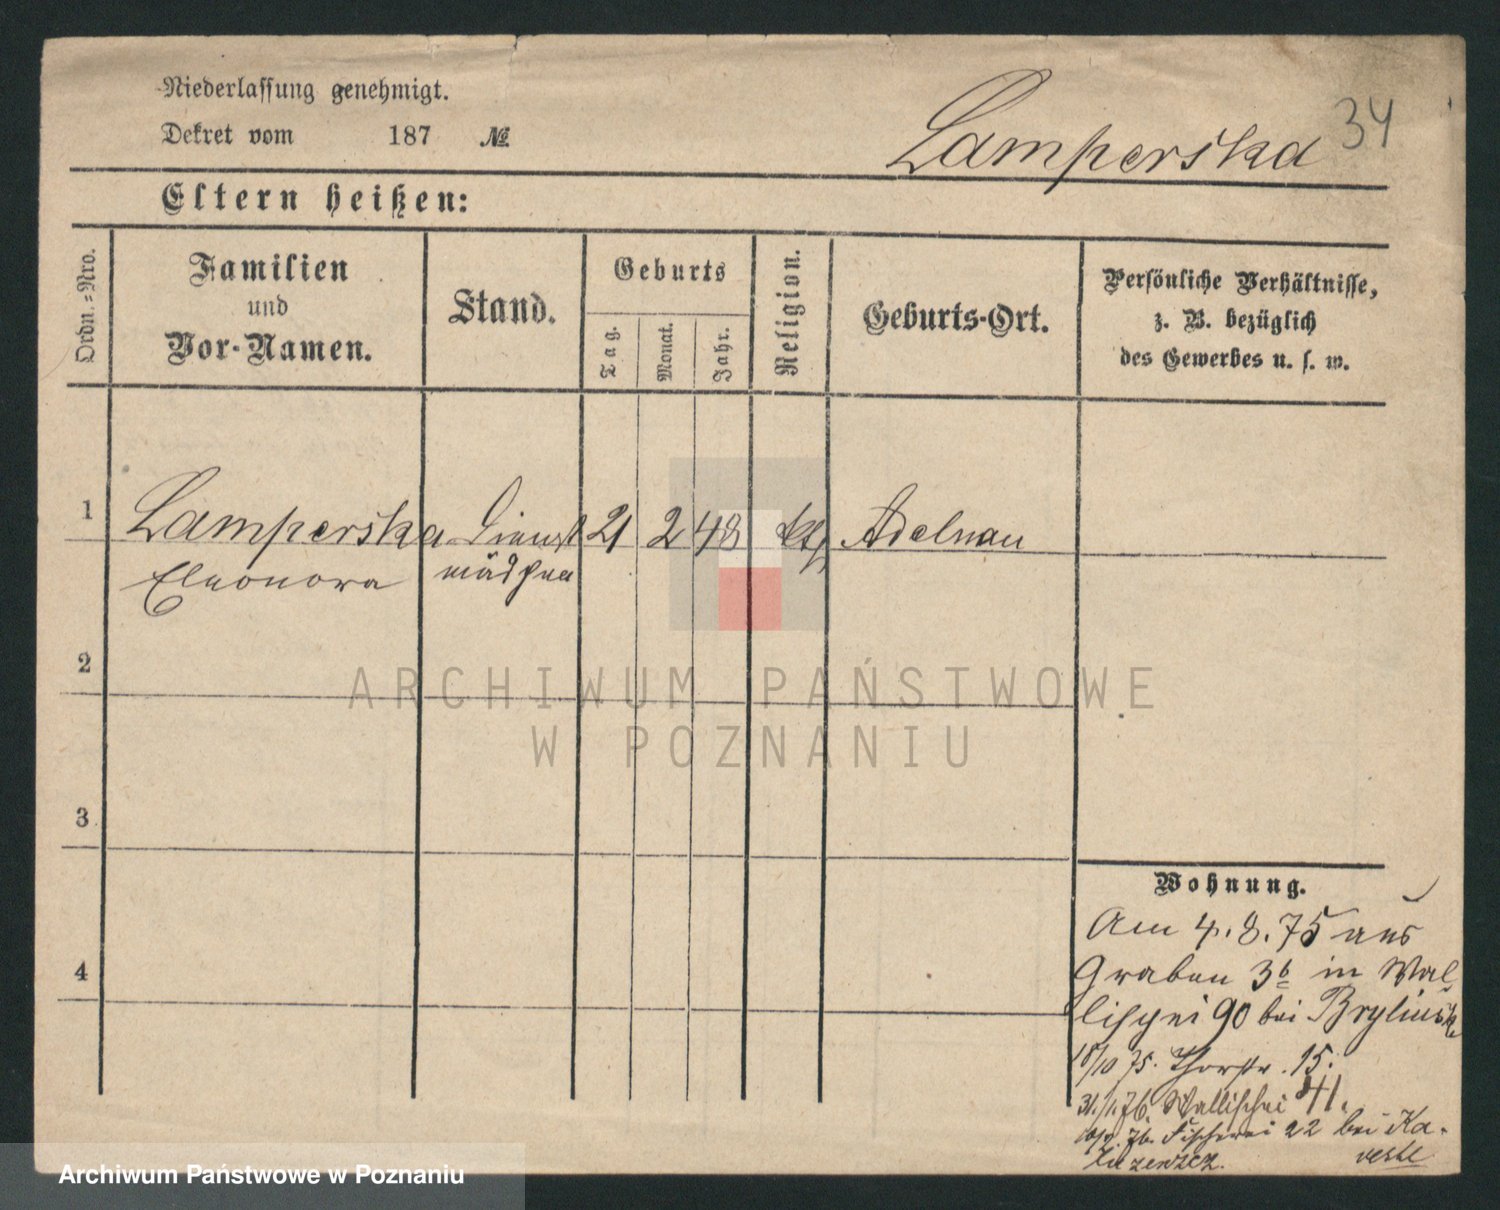 Niederlassung genehmigt.
Dekret vom 187 №
Lamperska 34
Eltern heißen:
Ordn.-Nro.
Familien
und
Vor-Namen.
Stand.
Geburts
Tag.
Monat.
Jahr.
Religion.
Geburts-Ort.
Persönliche Verhältnisse,
z. B. bezüglich
des Gewerbes u. s. w.
1 Lamperska Dienst 21 2 48 kth Adelnau
Eleonora mädchen
2
ARCHIWUM PAŃSTWOWE
W POZNANIU
3
4
Wohnung.
Am 4.8.75 aus
Graben 3b in Wal
lischei 90 bei Brylinsk
18/10 75. Thorstr. 15.
31./1.76. Wallischei 41.
76. Fischerei 22 bei Ka-
Archiwum Państwowe w Poznaniu